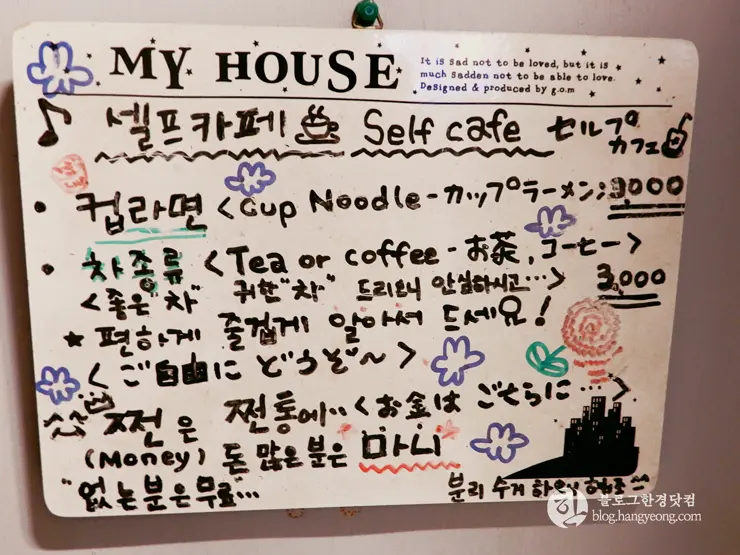 MY HOUSE
It is sad not to be loved, but it is
much sadden not to be able to love.
Designed & produced by g.o.m
셀프카페 Self cafe セルプ
カフェ
• 컵라면 <Cup Noodle-カップラーメン; 3,000
• 차종류 <Tea or coffee - お茶, コーヒー> 3,000
<좋은"차" 귀한"차" 드리오니 안심하시고...>
★ 편하게 즐겁게 알아서 드세요!
<ご自由に どうぞ~>
^^ 쩐은 쩐통에.. <お金は こちらに...>
(Money) 돈 많은 분은 마니
"없는분은무료"...
분리 수거 ^^
블로그한경닷컴
blog.hangyeong.com